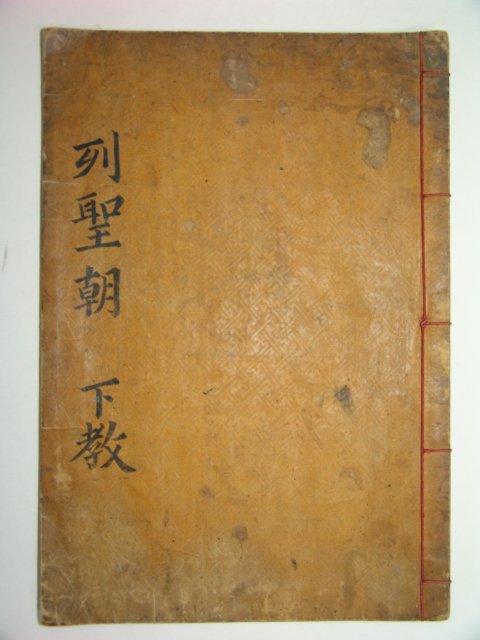 列聖朝 下教